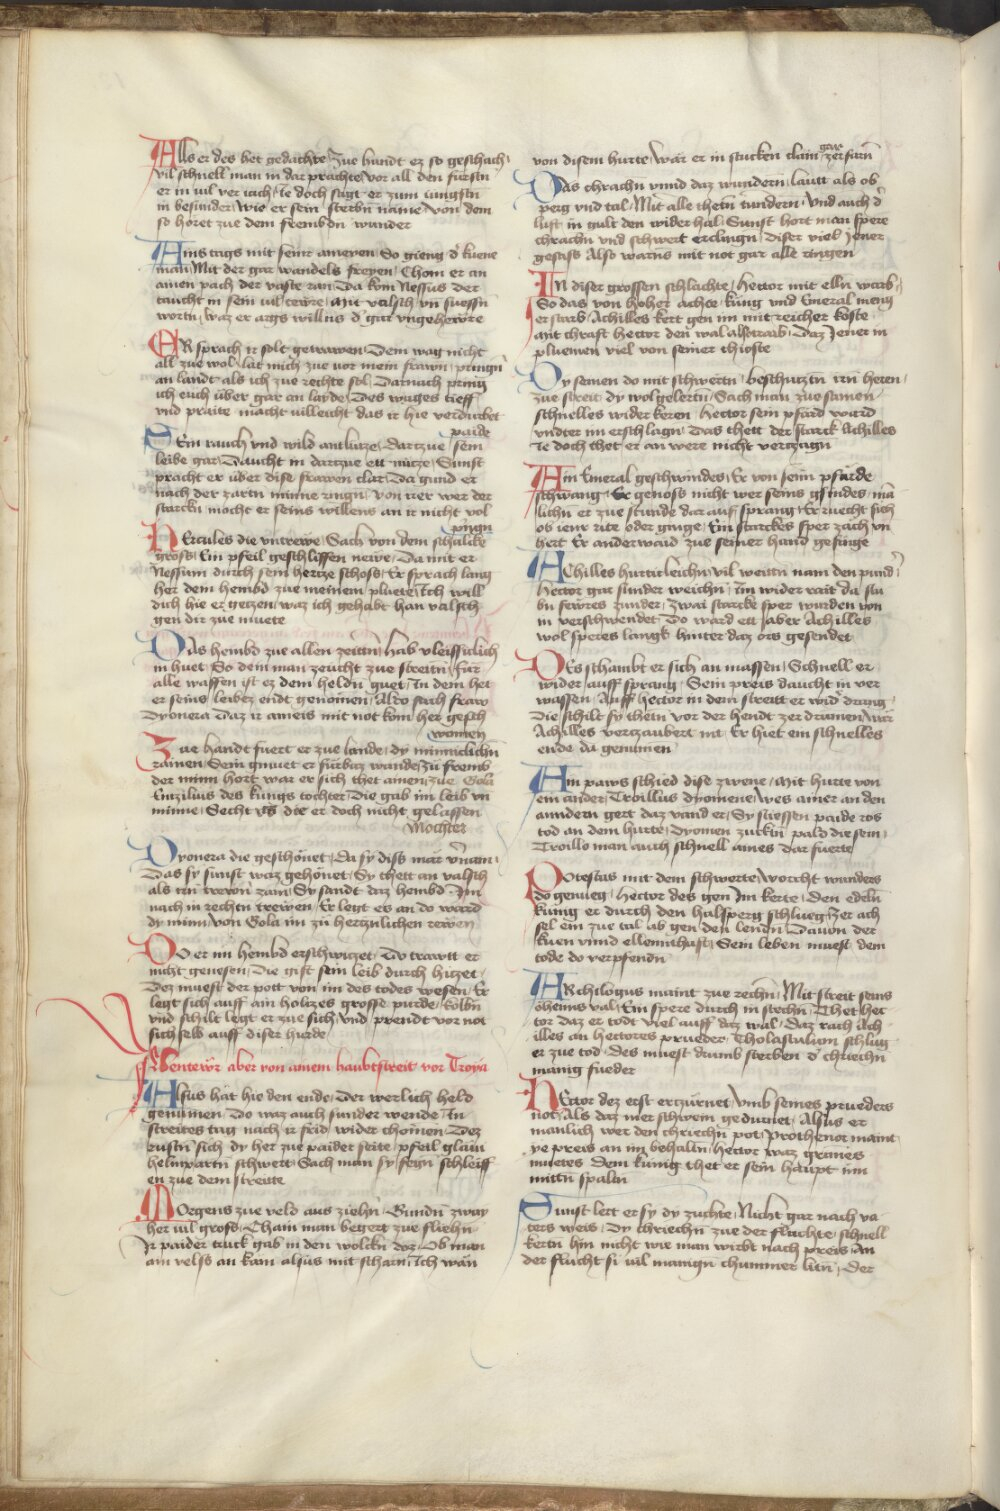 Alls er des het gedachte / Zue handt ez so geschach /
vil schnell man in dar prachte / vor all den fürstn
er in vil ver iach / Je doch sagt er zum iungstn
in besunder / wie er sein sterbn name / von dem
so horet zue dem frembdn wunder
Ains tags mit seinr ameyen / So gieng d kuene
man / Mit der gar wandels freyen / Chom er an
ainen pach der vaste ran / Da kom Nessus der
taucht in sein vil tewre / Mit valsch vn suessn
wortn / waz er args willns d gar vngehewre
ER sprach ir solt getrawen / Dem wag nicht
all zue wol / lat mich zue vor mein frawn / pringn
an landt als ich zue rechte sol / Darnach pring
ich euch über gar an layde / Des wages tieff
vnd praite / macht villeicht das ir hie verdurbet
paide
Sein rauch vnd wild antlutze / Dartzue sein
leibe gar / Daucht in dartzue ett nütze / Sunst
pracht er über dise frawen clar / Da gund er
nach der zartn minne ringn / von irer wer der
starckn mocht er seins willens an ir nicht vol
pringn
HErcules die vntrewe / Sach von dem schalcke
gross / Ein pfeil geschliffen newe / Da mit er
Nessum durch sein hertze schoss / Er sprach lang
her dem hembd zue meinem pluete / Ich will
dich hie er getzen / waz ich gehabt han valsch
gen dir zue muete
Das hembd zue allen zeittn / hab vleissiclich
in huet / So dem man zeucht zue streittn / Für
alle waffen ist ez dem heldn guet / In dem het
er seins leibez endt genomen / Also sach fraw
Dyonera Daz ir ameis mit not kom her gesch
women
Zue handt fuert er zue lande / dy minniclichn
rainen / Sein gmuet er fürbaz wande / zu fremb
der minn hort war er sich thet ainen / zue Gola
Enzilius des kungs tochter / Die gab im leib vn
minne / Secht vss die er doch nicht gelassen
mochter
Dyonera die geschönet / Da sy diss mär vernam /
Das sy sunst waz gehönet / Sy thett an valsch
als irn trewn zam / Sy sandt daz hembd Im
nach in rechtn trewen / Er legt es an do ward
dy minn / von Gola im zu hertznlichen rewen
DO er im hembd erschwitzet / Do trawtt er
nicht genesen / Die gift sein leib durch hitzet /
Dez muest der pott von im des todes wesen / Er
legt sich auff ain holtzes grosse purde / kolbn
vnd schilt legt er zue sich / vnd prendt vor not
sich selb auff diser hurde
Abentewr aber von ainem haubtstreit vor Troya
Alsus hat hie den ende / Der werlich held
genumen / Do waz auch sunder wende / In
streites tag nach ir frid wider chomen / Dez
rustn sich dy her zue paider seite / pfeil glain
helmpartn schwert / Sach man sy fegn schleiff
en zue dem streitte
MOrgens zue veld aus ziehn / Gundn zway
her vil gross / Chain man begert zue fliehn
Ir paider truck gab in den wolckn doz / Ob man
ain velss an kam alsus mit scharn / Ich wan
von disem hurte / wär er in stucken clain gar zerfarn
Das chrachn vnnd daz wundern / lautt als ob
perg vnd tal / Mit alle thetn tundern / Vnd auch d
luft in gult den wider hal / Sunst hort man spere
chrachn vnd schwert erclingn / Diser viel Jener
gesass / Also warns mit not gar alle ringen
IN diser grossen schlachte / Hector mit elln warb /
So das von hoher achte / kung vnd Emeral meng
er starb / Achilles kert gen im mit reicher koste
mit chraft Hector den wal also traib / Daz Jener in
pluemen viel von seiner thioste
Dy seinen do mit schwertn / beschutztn irn heren /
zue streit dy wolgelertn / Sach man zue samen
schnelles wider keren / Hector sein pfärd ward
vndter im erschlagn / Das thett der starck Achilles
Je doch thet er an were nicht vertzagn
Ain Emeral geschwindes / Er von seim pfärde
schwang / Er genoss nicht wer seins gsindes / mā
lichn er zue stunde dar auf sprang / Er ruecht sich
ob iener rite oder gienge / Ein starckes sper zuch vn
hert Er anderwaid zue seiner hand gefinge
AChilles hurticleichn / vil weittn nam den pund /
Hector gar sunder weichn / Im wider rait da stu
bn fewres zunder / Zwai starcke sper wurden von
in verschwendet / Do ward ett aber Achilles
wol speres langk hinter daz ors gesendet
DEs schambt er sich an massen / Schnell er
wider auff sprang / Sein preis daucht in ver
wassen / Auff Hector in dem streitt er wider drang /
Die schilt sy thetn vor der hendt zer dramen / wär
Achilles vertzaubert nit / Er hiet ein schnelles
ende da genumen
Ain paws schied dise zwene / Mit hurte von
ein ander / Troillus dyomene / wes ainer an den
anndern gert daz vand er / Sy stiessen paide ros
tod an dem hurte / Dyomen zucktn pald die sein /
Troillo man auch schnell aines dar fuerte
POtestas mit dem schwerte / worcht wunders
do genueg / Hector des gen Im kerte / Den edeln
kung er durch den halsperg schlueg / Der ach
sel ein zue tal ab gen den lendn / Dauon der
kuen vnnd ellennthaft / Sein leben muest dem
tode do verpfendn
ARchilogus maint zue rechn / Mit streit seins
öheims val / Ein spere durch in stechn / Thet Hec
tor daz er todt viel auff daz wal / Daz rach Ach
illes an Hectores prueder / Tholastulum schlug
er zue tod / Des muest drumb sterben d chriechn
manig fueder
HEctor dez erst ertzürnet / Vmb seines prueders
not / Als daz mer schwein gedürnet / Alsus er
manlich wer den chriechn pot / Prothenor maint
ye preis an im behaltn / Hector waz grimes
muetes / Dem künig thet er sein haupt im
mittn spaltn
Sunst lert er sy dy zuchte / Nicht gar nach va
ters weis / Dy chriechn zue der fluchte / schnell
kertn hin nicht wie man wirbt nach preis / An
der flucht si vil manign chummer litn / Der